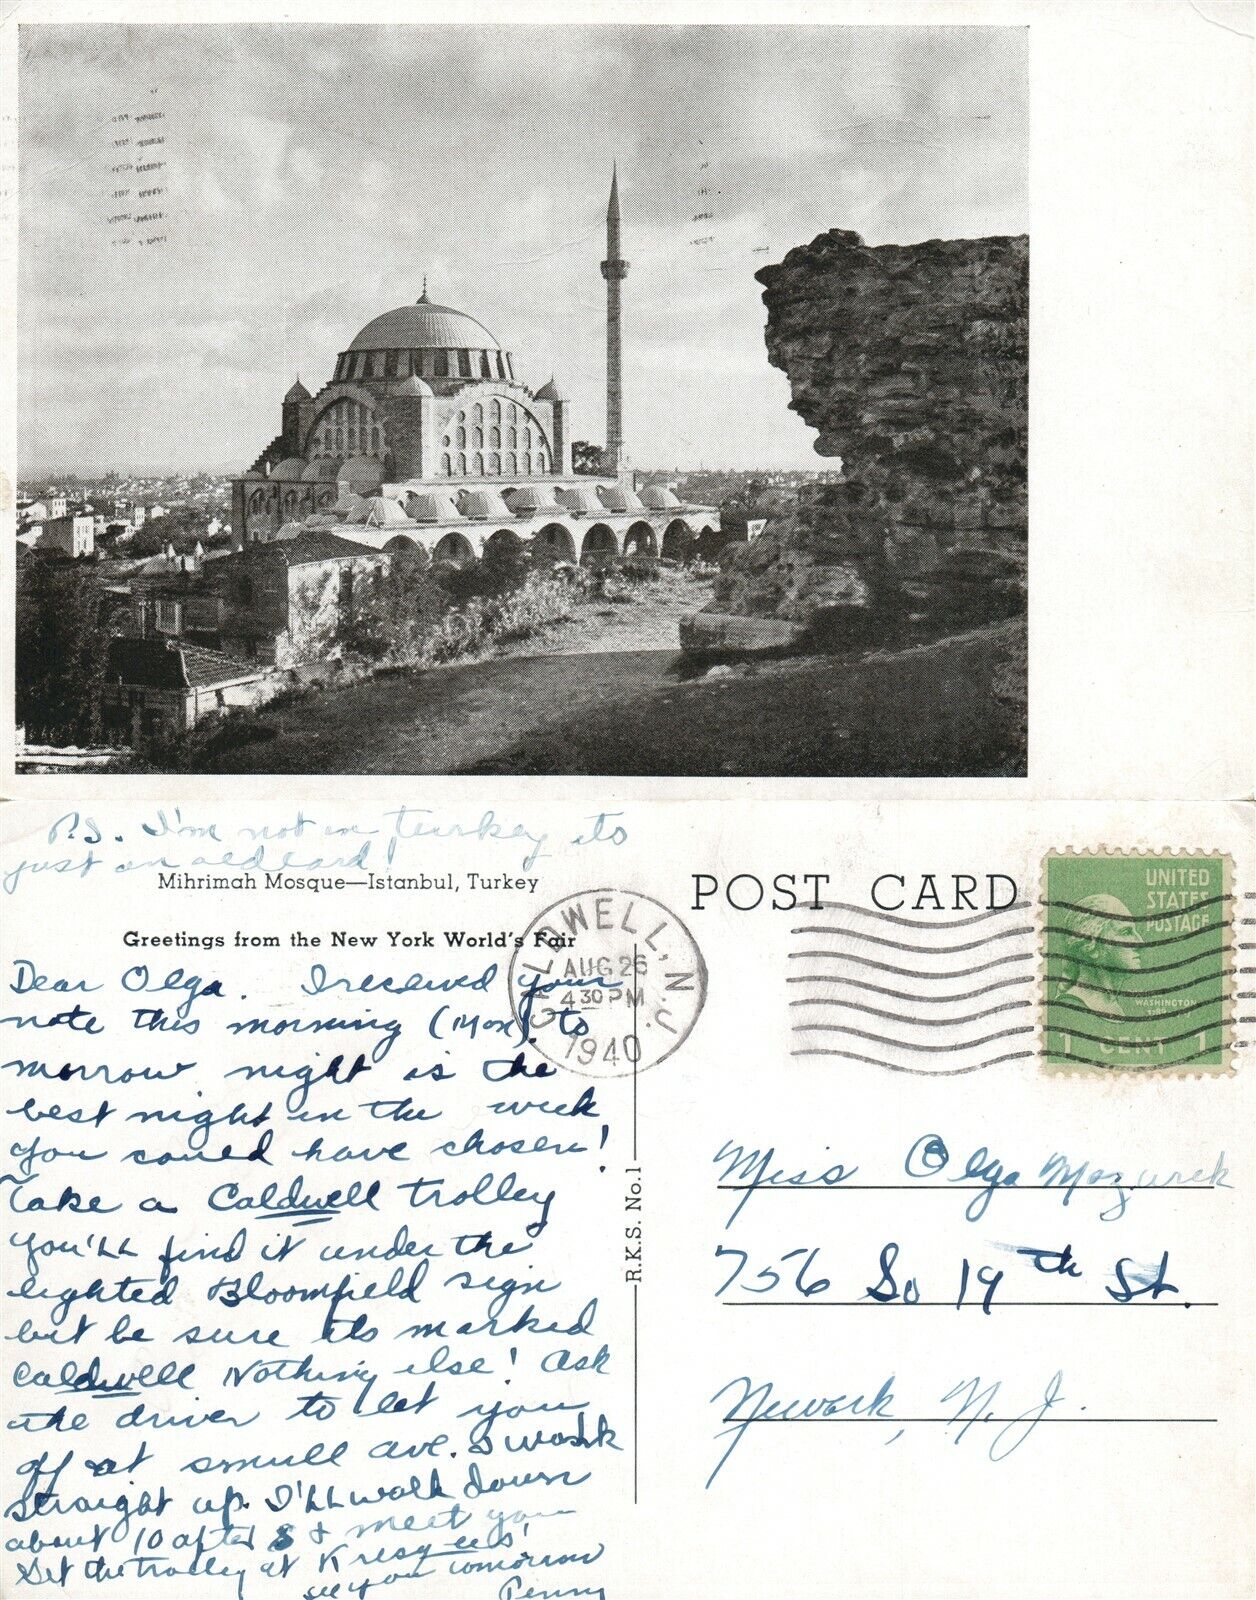 P.S. I'm not in Turkey its
just an old card!
Mihrimah Mosque—Istanbul, Turkey
Greetings from the New York World's Fair
POST CARD
UNITED
STATES
POSTAGE
WASHINGTON
1 CENT 1
CALDWELL, N.J.
AUG 26
4 30 PM
1940
Dear Olga. I received your
note this morning (Mon). to
morrow night is the
best night in the week
you could have chosen!
Take a Caldwell trolley
you'll find it under the
lighted Bloomfield sign
but be sure its marked
Caldwell Nothing else! Ask
the driver to let you
off at Smull ave. & walk
straight up. I'll walk down
about 10 after 8 & meet you
Get the trolley at Kresgees!
see you tomorrow
Penny
R.K.S. No.1
Miss Olga Mazurek
756 So 19th St.
Newark, N. J.